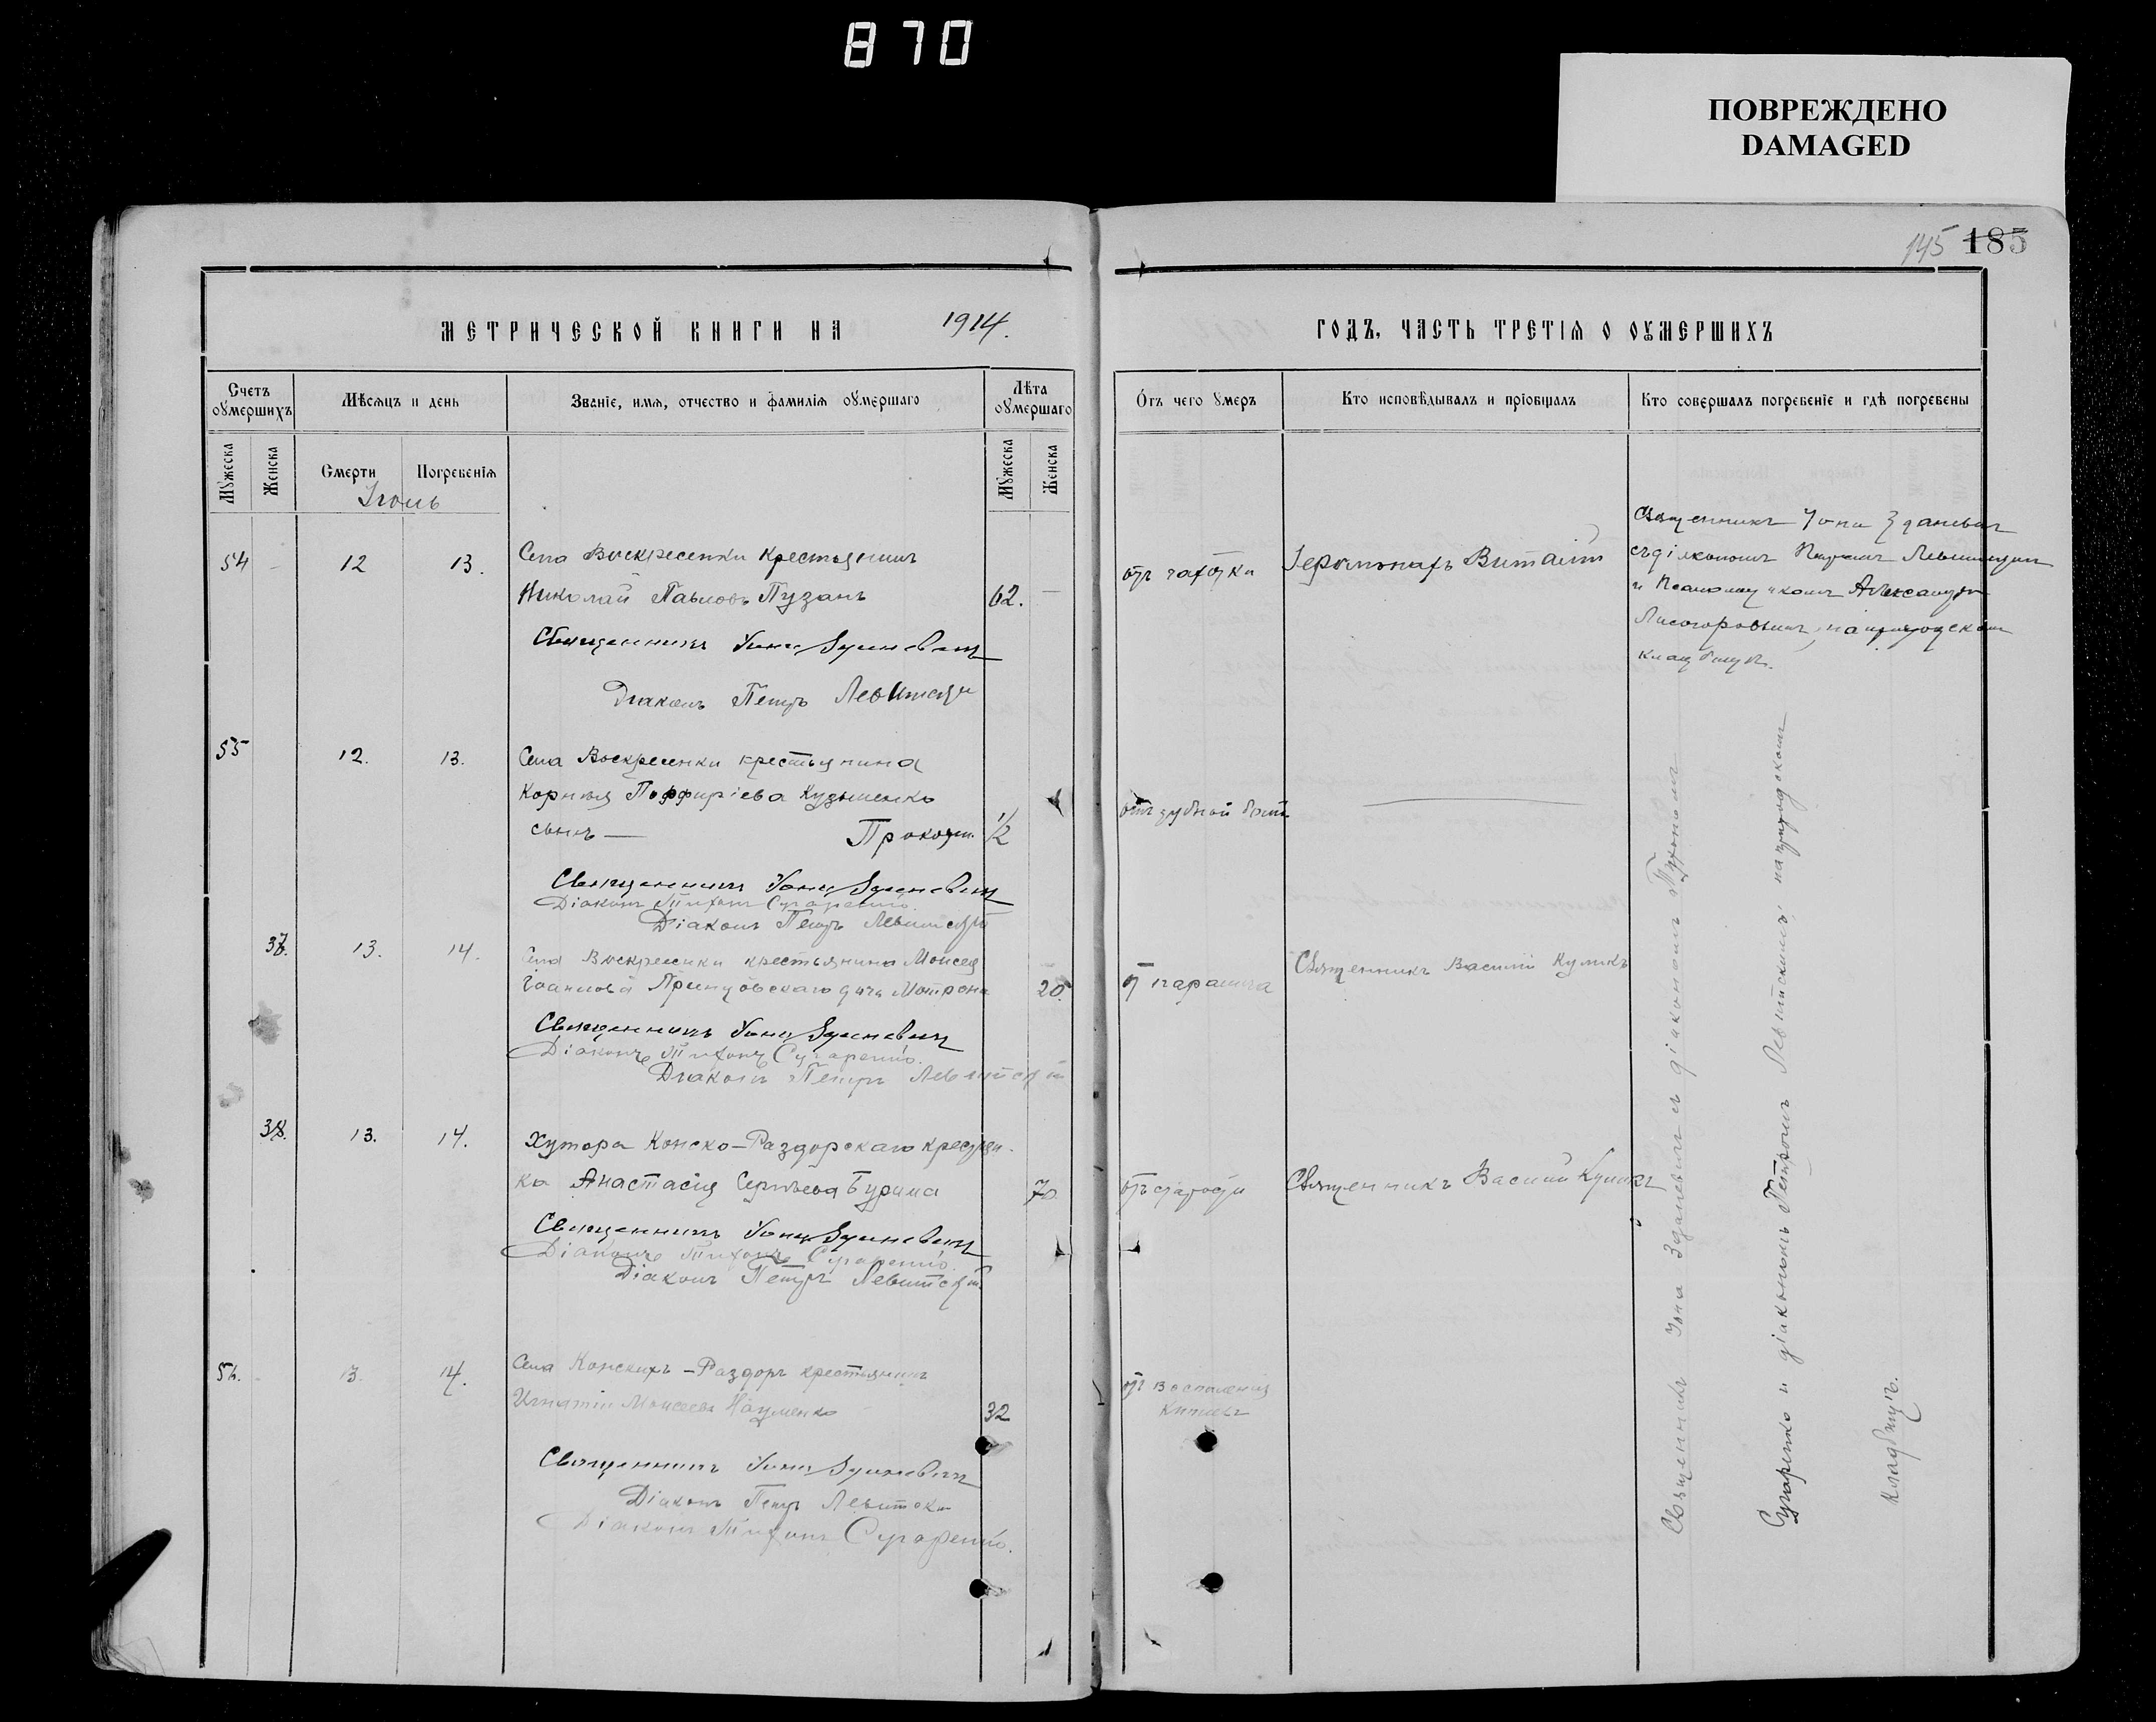 870
ПОВРЕЖДЕНО
DAMAGED
145 185
МЕТРИЧЕСКОЙ КНИГИ НА 1914. ГОДЪ, ЧАСТЬ ТРЕТІѦ О ОУМЕРШИХЪ
Счетъ оумершихъ
Мѣсяцъ и день
Званіе, имя, отчество и фамилія оумершаго
Лѣта оумершаго
Отъ чего умеръ
Кто исповѣдывалъ и пріобщалъ
Кто совершалъ погребеніе и гдѣ погребены
Мужеска
Женска
Смерти
Погребенія
Мужеска
Женска
54 12 13.
Села Воскресенки крестьянинъ
Николай Павловъ Пузанъ 62.
Священникъ Іона Зданевич
Діаконъ Петръ Левитскій
отъ чахотки
Іеромонахъ Виталій
Священникъ Іона Зданевич
съ діакономъ Петромъ Левитскимъ
и Псаломщикомъ Александромъ
на приходскомъ
кладбищѣ.
55 12. 13.
Села Воскресенки крестьянина
Корнѣя Порфиріева Кузьменко
сынъ — Прокопій 1/2
Священникъ Іона Зданевич
Діаконъ Тихонъ Сугаренко
Діаконъ Петръ Левитскій
отъ зубной
37. 13. 14.
Села Воскресенки крестьянина Моисея
Іоаннова дочь Мотрона 20.
Священникъ Іона Зданевич
Діаконъ Тихонъ Сугаренко.
Діаконъ Петръ Левитскій
Священникъ Василій Куликъ
38. 13. 14.
Хутора Конско-Раздорскаго крестьян-
ка Анастасія Сергѣева Бурима 70
Священникъ Іона Зданевич
Діаконъ Тихонъ Сугаренко.
Діаконъ Петръ Левитскій
отъ старости
Священникъ Василій Куликъ
56. 13. 14.
Села Конскихъ-Раздоръ крестьянинъ
Игнатій Моисеевъ Науменко 32
Священникъ Іона Зданевич
Діаконъ Петръ Левитскій
Діаконъ Тихонъ Сугаренко.
отъ воспаленія
кишекъ
Священникъ Іона Зданевичъ съ діакономъ Тихономъ
Сугаренко и діакономъ Петромъ Левитскимъ, на приходскомъ
кладбищѣ.